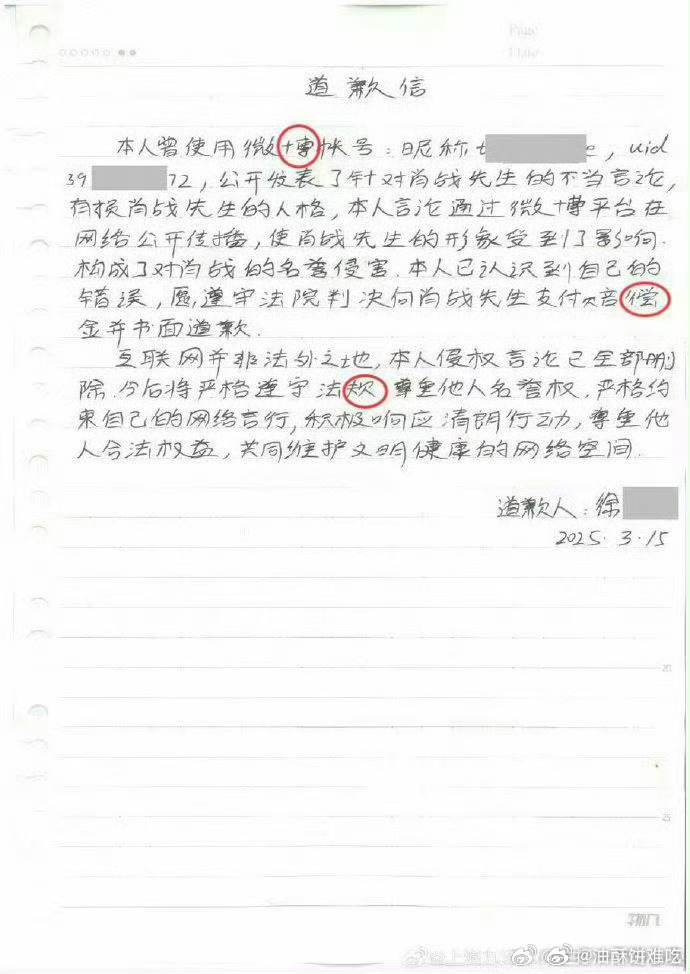 Page
Date
道歉信
本人曾使用微博帐号：昵称t e，uid
39 72，公开发表了针对肖战先生的不当言论，
有损肖战先生的人格，本人言论通过微博平台在
网络公开传播，使肖战先生的形象受到了影响.
构成了对肖战的名誉侵害.本人已认识到自己的
错误，愿遵守法院判决向肖战先生支付赔偿
金并书面道歉.
互联网并非法外之地，本人侵权言论已全部删
除.今后将严格遵守法规 尊重他人名誉权，严格约
束自己的网络言行，积极响应清朗行动，尊重他
人合法权益，共同维护文明健康的网络空间.
道歉人：徐
2025.3.15
20
25
@油酥饼难吃